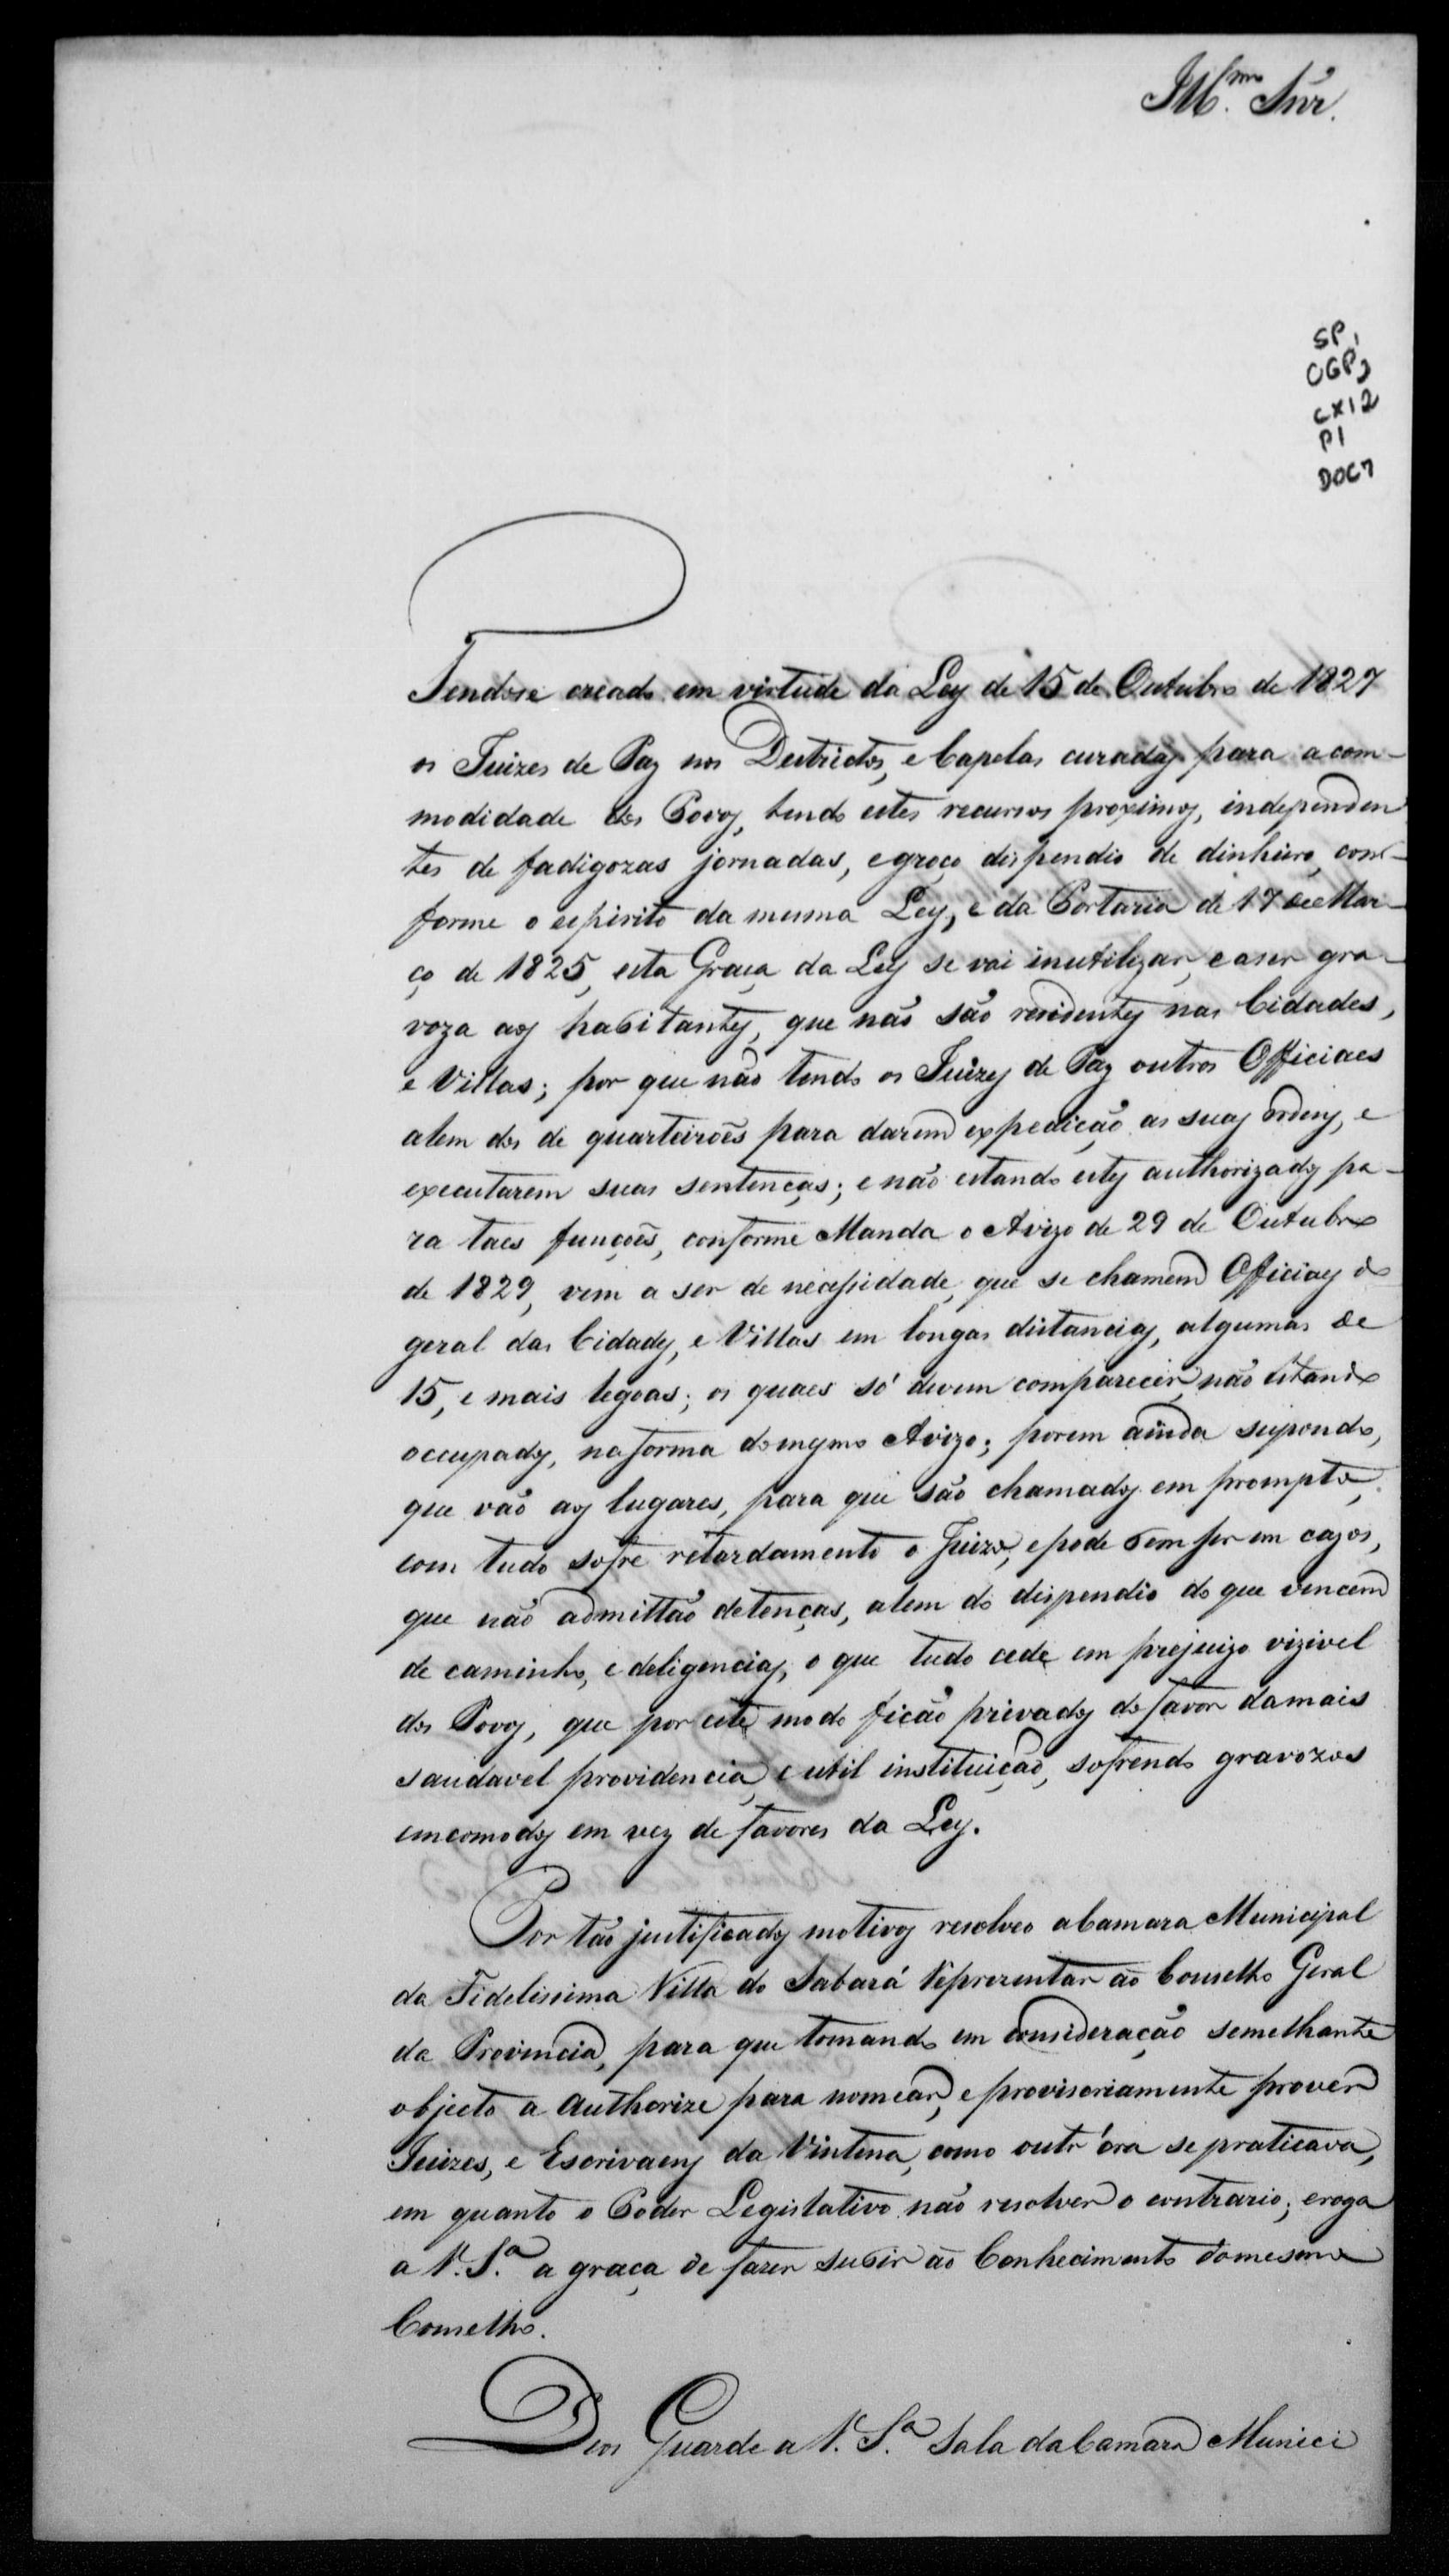 Ill.mo Snr.
SP1
CGP2
CX12
P1
DOC7
Tendose creado em virtude da Ley de 15 de Outubro de 1827
os Juizes de Paz nos Destrictos, e Capelas curadas para a com-
modidade dos Povos, tendo estes recursos proximos, independen
tes de fadigozas jornadas, e groço dispendio de dinheiro, con-
forme o espirito da mesma Ley, e da Portaria de 17 de Mar-
ço de 1825, esta Graça da Ley se vai inutilizar, e a ser gra-
voza aos habitantes, que não são residentes nas Cidades,
e Villas; por que não tendo os Juizes de Paz outros Officiaes
alem dos de quarteirões para darem expedição as suas ordens, e
executarem suas sentenças; e não estando estes authorizados pa-
ra taes funções, conforme Manda o Avizo de 29 de Outubro
de 1829, vem a ser de necessidade, que se chamem Officiaes do
geral das Cidades, e Villas em longas distancias, algumas de
15, e mais legoas; os quaes só devem comparecer, não estando
occupados, na forma do mesmo Avizo; porem ainda supondo,
que vão aos lugares, para que são chamados em prompto,
com tudo sofre retardamento o Juizo, e pode bem ser em cazos,
que não admittão detenças, alem do dispendio do que vencem
de caminho, e deligencias, o que tudo cede em prejuizo vizivel
dos Povos, que por este modo ficão privados do favor da mais
saudavel providencia, e util instituição, sofrendo gravozos
encomodos em vez de favores da Ley.
Por tão justificados motivos resolveo a Camara Municipal
da Fidelissima Villa do Sabará reprezentar ao Conselho Geral
da Provincia, para que tomando em consideração semelhante
objecto a Authorize para nomear, e provisoriamente prover
Juizes, e Escrivaens da Vintena, como outr'ora se praticava,
em quanto o Poder Legislativo não resolver o contrario; e roga
a V. S.a a graça de fazer subir ao Conhecimento do mesmo
Conselho.
Deos Guarde a V. S.a Sala da Camara Munici